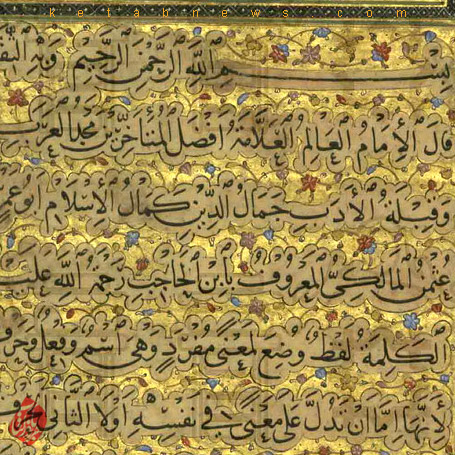 ketabnews.com
بسم الله الرحمن الرحيم وبه
قال الإمام العالم العلامة أفضل المتأخرين
وقبلة الأدب جمال الدين كمال الإسلام أبو عمر
عثمن المالكي المعروف بابن الحاجب رحمه الله عليه
الكلمة لفظ وضع لمعنى مفرد وهي اسم وفعل وحرف
لأنها إما أن تدل على معنى في نفسه أولا الثاني الحرف